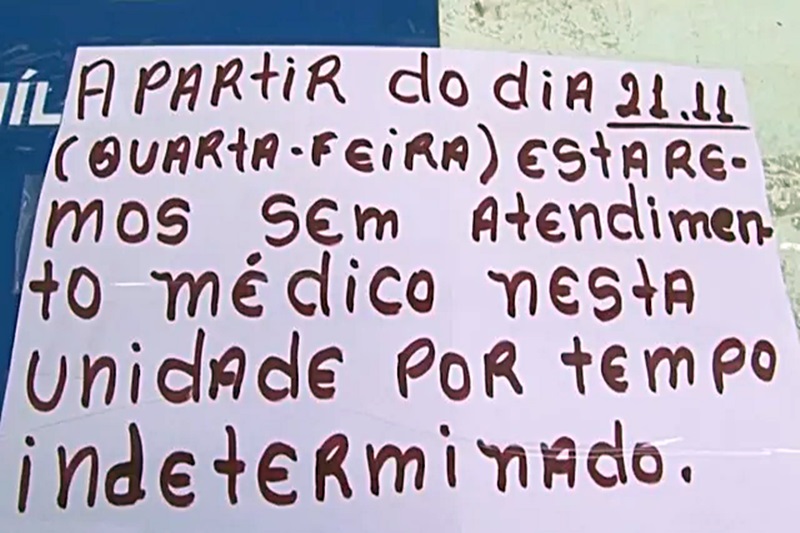 ÍL
A PARTIR do diA 21.11
(QUARTA-FEIRA) ESTARE-
mos SEM Atendimen-
to médico nESTA
UnidAdE POR tEmPO
indEtERminAdo.